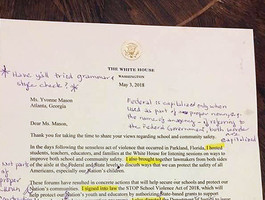 THE WHITE HOUSE
WASHINGTON
May 3, 2018
Have y'all tried grammar &
style check?
Federal is capitalized only when
used as part of a proper noun, e.g.
the name of an agency – if referring to
the Federal Government, both words are
capitalized
Ms. Yvonne Mason
Atlanta, Georgia
Dear Ms. Mason,
Thank you for taking the time to share your views regarding school and community safety.
In the days following the senseless act of violence that occurred in Parkland, Florida, I hosted
students, teachers, educators, and families at the White House for listening sessions on ways to
improve both school and community safety. I also brought together lawmakers from both sides
of the and State levels to discuss ways that we can protect the safety of all
Americans, especially our Nation's children.
These forums have resulted in concrete actions that will help secure our schools and protect our
Nation's communities. I signed into law the STOP School Violence Act of 2018, which will
help protect our Nation's youth and educators by authorizing State-based grants to support
Not part
of
proper